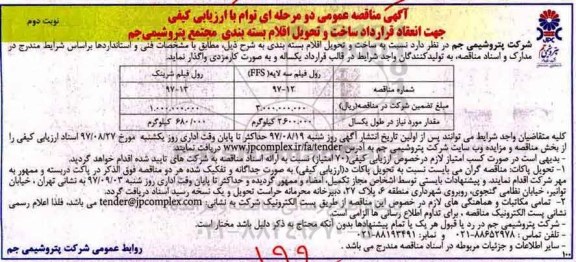 آگهی مناقصه عمومی دو مرحله ای توام با ارزیابی کیفی
نوبت دوم
جهت انعقاد قرارداد ساخت و تحویل اقلام بسته بندی مجتمع پتروشیمی جم
شرکت پتروشیمی جم در نظر دارد نسبت به ساخت و تحویل اقلام بسته بندی به شرح ذیل، مطابق با مشخصات فنی و استانداردها براساس شرایط مندرج در
مدارک و اسناد مناقصه، به تولیدکنندگان واجد شرایط در قالب قرارداد یکساله و به صورت کارمزدی واگذار نماید.
رول فیلم سه لایه (FFS) رول فیلم شرینک
شماره مناقصه ۹۷-۱۲ ۹۷-۱۳
مبلغ تضمین شرکت در مناقصه(ریال) ۳،۰۰۰،۰۰۰،۰۰۰ ۱،۰۰۰،۰۰۰،۰۰۰
مقدار مورد نیاز در طول یکسال ۲،۶۰۰،۰۰۰ کیلوگرم ۶۸۰/۰۰۰ کیلوگرم
کلیه متقاضیان واجد شرایط می توانند پس از اولین تاریخ انتشار آگهی روز شنبه ۹۷/۰۸/۱۹ حداکثر تا پایان وقت اداری روز یکشنبه مورخ ۹۷/۰۸/۲۷ اسناد ارزیابی کیفی را
از بخش مناقصه و مزایده وب سایت شرکت پتروشیمی جم به آدرس www.jpcomplex.ir/fa/tender دریافت نمایند.
- بدیهی است در صورت کسب امتیاز لازم درخصوص ارزیابی کیفی (۷۰ امتیاز) نسبت به ارائه اسناد مناقصه به شرکت های تایید شده اقدام خواهد گردید.
۱- تحویل پاکات: مناقصه گران می بایست نسبت به تحویل پاکات (ارزیابی کیفی) به صورت جداگانه و تفکیک شده هر دو مناقصه فوق الذکر در پاکت دربسته و ممهور به
مهر شرکت اقدام نمایند و پیشنهادات بایستی توسط اشخاص مجاز تکمیل، امضاء و ممهور گردیده و حداکثر تا پایان وقت اداری روز شنبه ۹۷/۰۹/۰۳ به نشانی تهران، خیابان
توانیر، خیابان نظامی گنجوی، روبروی شهرداری منطقه ۶، پلاک ۲۷، دبیرخانه محرمانه حراست تحویل و یک نسخه رسید اسناد دریافت گردد.
۲- تمامی مکاتبات و هماهنگی های لازم در خصوص این مناقصه از طریق پست الکترونیک شرکت به نشانی tender@jpcomplex.com می باشد، فلذا اعلام رسمی
نشانی پست الکترونیک مناقصه، برای تداوم اطلاع رسانی ها الزامی است.
- شرکت پتروشیمی جم در رد یا قبول هر یک یا تمام پیشنهادها بدون آنکه محتاج به ذکر دلیل باشد مختار است.
- تلفن تماس: ۸۸۶۵۲۹۷۸-۰۲۱ و نمابر: ۸۸۱۹۳۴۹۱-۰۲۱
- سایر اطلاعات و جزئیات مربوطه در اسناد مناقصه مندرج می باشد.
روابط عمومی شرکت پتروشیمی جم
۱۹۹